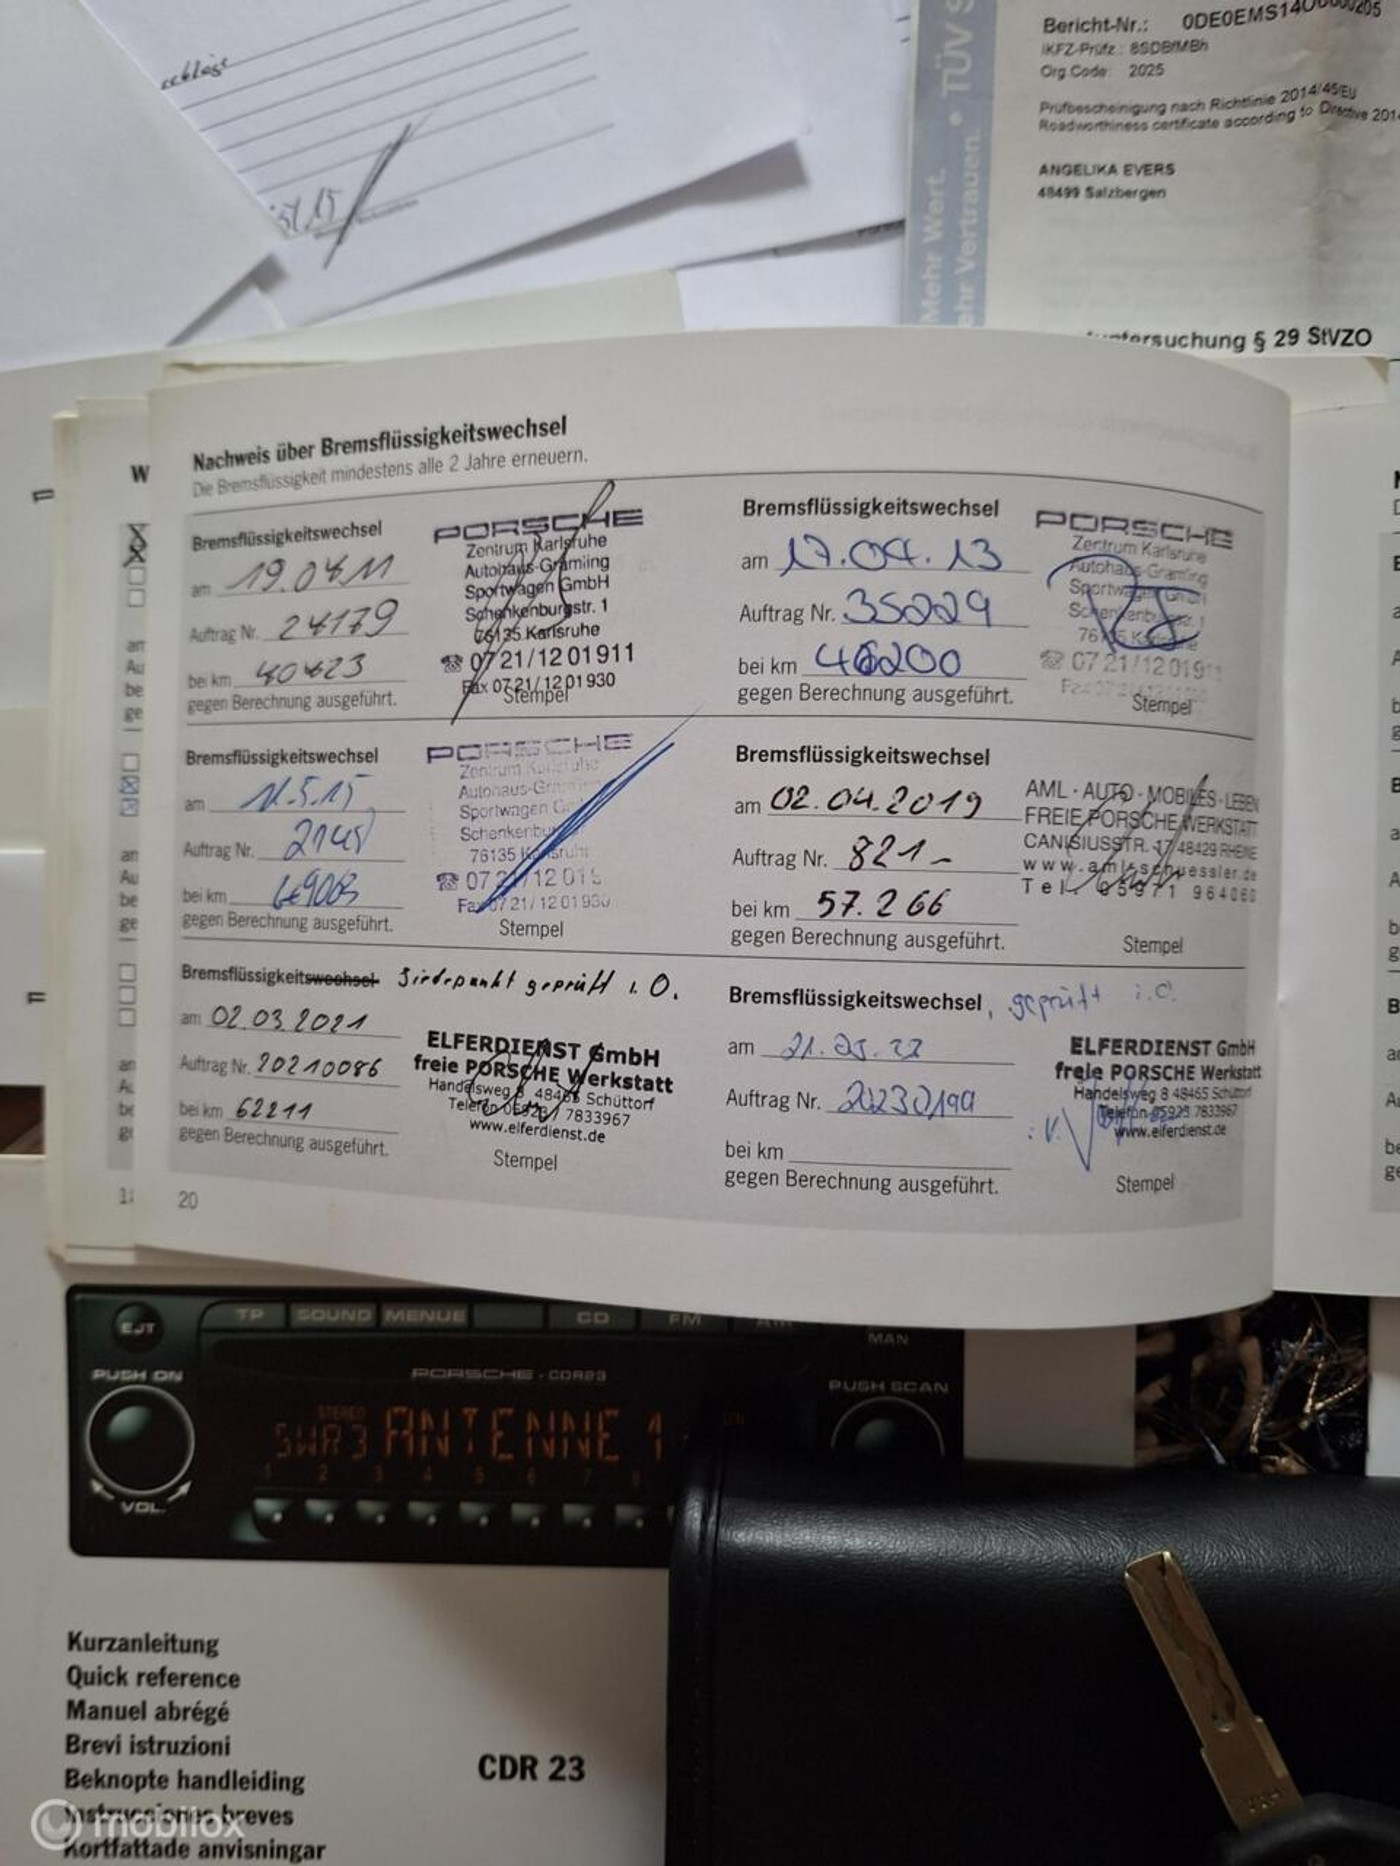 Bericht-Nr.:
IKFZ-Prüfz.:
Org Code: 2025
Prüfbescheinigung nach Richtlinie 2014/45/EU
Roadworthiness certificate according to Directive
ANGELIKA EVERS
48499 Salzbergen
Mehr Wert.
ehr Vertrauen. • TÜV
§ 29 StVZO
Nachweis über Bremsflüssigkeitswechsel
Die Bremsflüssigkeit mindestens alle 2 Jahre erneuern.
Bremsflüssigkeitswechsel
am 19.04.11
Auftrag Nr. 24179
bei km
gegen Berechnung ausgeführt.
PORSCHE
Zentrum Karlsruhe
Autohaus Gramling
Sportwagen GmbH
Schenkenburgstr. 1
76135 Karlsruhe
☎ 07 21/12 01 911
Fax 07 21/12 01 930
Stempel
Bremsflüssigkeitswechsel
am 17.04.13
Auftrag Nr. 35229
bei km
gegen Berechnung ausgeführt.
PORSCHE
Zentrum Karlsruhe
Autohaus Gramling
Sportwagen GmbH
Schenkenburgstr. 1
76135 Karlsruhe
☎ 07 21/12 01 911
Stempel
Bremsflüssigkeitswechsel
am
Auftrag Nr.
bei km
gegen Berechnung ausgeführt.
PORSCHE
Zentrum Karlsruhe
76135 Karlsruhe
Fax 07 21/12 01 930
Stempel
Bremsflüssigkeitswechsel
am 02.04.2019
Auftrag Nr. 821-
bei km 57.266
gegen Berechnung ausgeführt.
AML · AUTO · MOBILES · LEBEN
FREIE PORSCHE WERKSTATT
CANISIUSSTR. 17 48429 RHEINE
www.aml-schuessler.de
Tel. 05971 964060
Stempel
Bremsflüssigkeitswechsel Siedepunkt geprüft i. O.
am 02.03.2021
Auftrag Nr. 20210086
bei km 62211
gegen Berechnung ausgeführt.
ELFERDIENST GmbH
freie PORSCHE Werkstatt
Handelsweg 8 48465 Schüttorf
Telefon 05923 / 7833967
www.elferdienst.de
Stempel
Bremsflüssigkeitswechsel, geprüft i.O.
am
Auftrag Nr. 20230199
bei km
gegen Berechnung ausgeführt.
ELFERDIENST GmbH
freie PORSCHE Werkstatt
Handelsweg 8 48465 Schüttorf
Telefon 05923 7833967
www.elferdienst.de
Stempel
20
EJT
TP SOUND MENUE CD FM
MAN
PUSH ON
PORSCHE - CDR23
PUSH SCAN
STEREO
SWR3 ANTENNE 1
1 2 3 4 5 6 7 8
VOL.
Kurzanleitung
Quick reference
Manuel abrégé
Brevi istruzioni
Beknopte handleiding
Instrucciones breves
Kortfattade anvisningar
CDR 23
mobilox